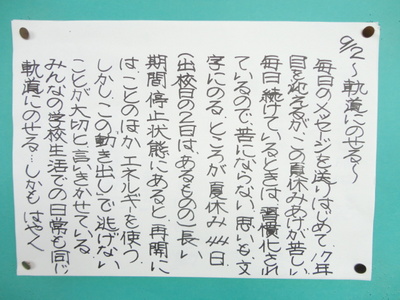 9/2～軌道にのせる～
毎日のメッセージを送りはじめて17年
目を迎えるが、この夏休みあけが苦しい
毎日続けているときは習慣化され
ているので、苦にならない。思いも文
字にのる。ところが夏休み44日
(出校日の2日はあるものの)長い
期間停止状態にあると再開に
は、ことのほかエネルギーを使う
しかし、この動き出しで逃げない
ことが大切と言いきかせている
みんなの学校生活での日常も同じ
軌道にのせる…しかもはやく